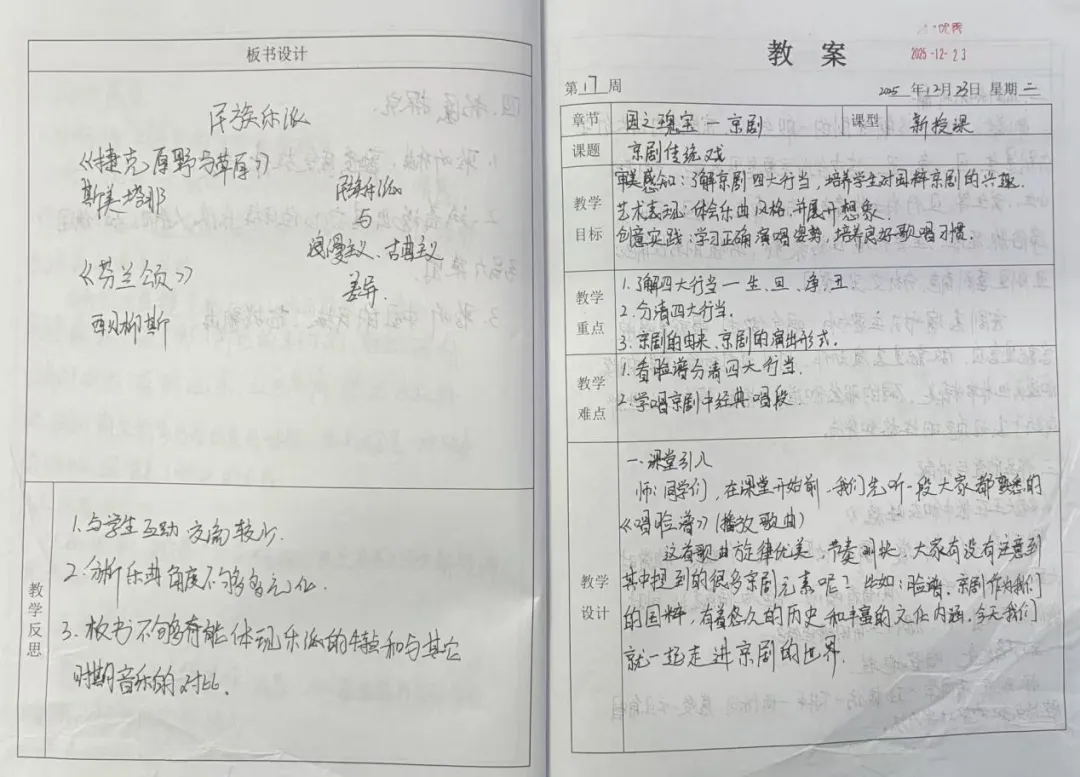 板书设计
民族乐派
《捷克原野与草原》
斯美塔那
民族乐派
与
浪漫主义、古典主义
差异.
《芬兰颂》
西贝柳斯
教学反思
1.与学生互动交流较少.
2.分析乐曲角度不够多元化.
3.板书不够有能体现乐派的特点和与其它
时期音乐的对比.
2025-12-23
教 案
第 17 周
2025 年 12 月 23 日 星期 二
章节
国之瑰宝—京剧
课型
新授课
课题
京剧传统戏
教学
目标
审美感知:了解京剧四大行当,培养学生对国粹京剧的兴趣.
艺术表现:体会乐曲风格,并展开想象.
创意实践:学习正确演唱姿势,培养良好歌唱习惯.
教学
重点
1.了解四大行当—生、旦、净、丑
2.分清四大行当.
3.京剧的由来、京剧的演出形式.
教学
难点
1.看脸谱分清四大行当.
2.学唱京剧中经典唱段.
教学
设计
一.课堂引入
师:同学们,在课堂开始前,我们先听一段大家都熟悉的
《唱脸谱》(播放歌曲)
这首歌曲旋律优美,节奏明快,大家有没有注意到
其中提到的很多京剧元素呢?比如:脸谱.京剧作为我们
的国粹,有着悠久的历史和丰富的文化内涵.今天我们
就一起走进京剧的世界.